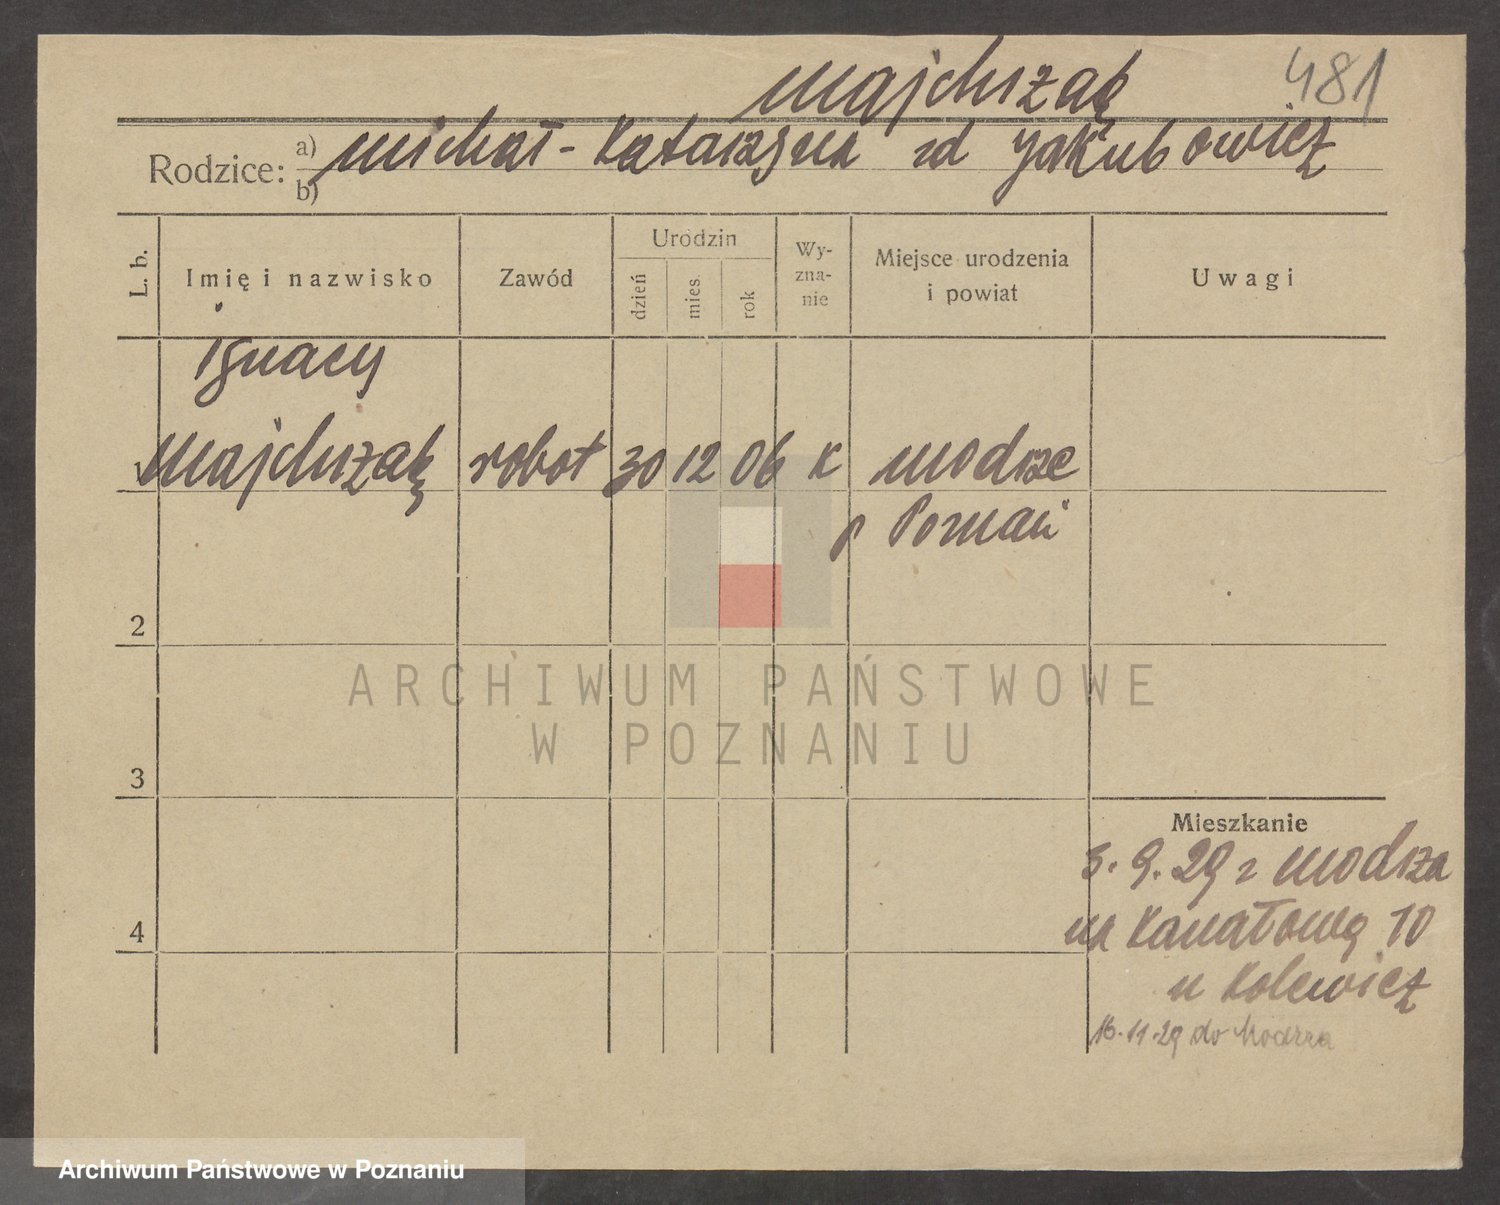 Majchrzak
481
Rodzice: a) Michał - Katarzyna zd Jakubowicz
b)
L. b.
Imię i nazwisko
Zawód
Urodzin
dzień
mies.
rok
Wy-
zna-
nie
Miejsce urodzenia
i powiat
Uwagi
Ignacy
1 Majchrzak robot 30 12 06 K Modrze
p Poznań
2
3
4
Mieszkanie
3.9.29 z Modrza
na Kanałową 10
u Kolewicz
16.11.29 do Modrza
ARCHIWUM PAŃSTWOWE
W POZNANIU
Archiwum Państwowe w Poznaniu